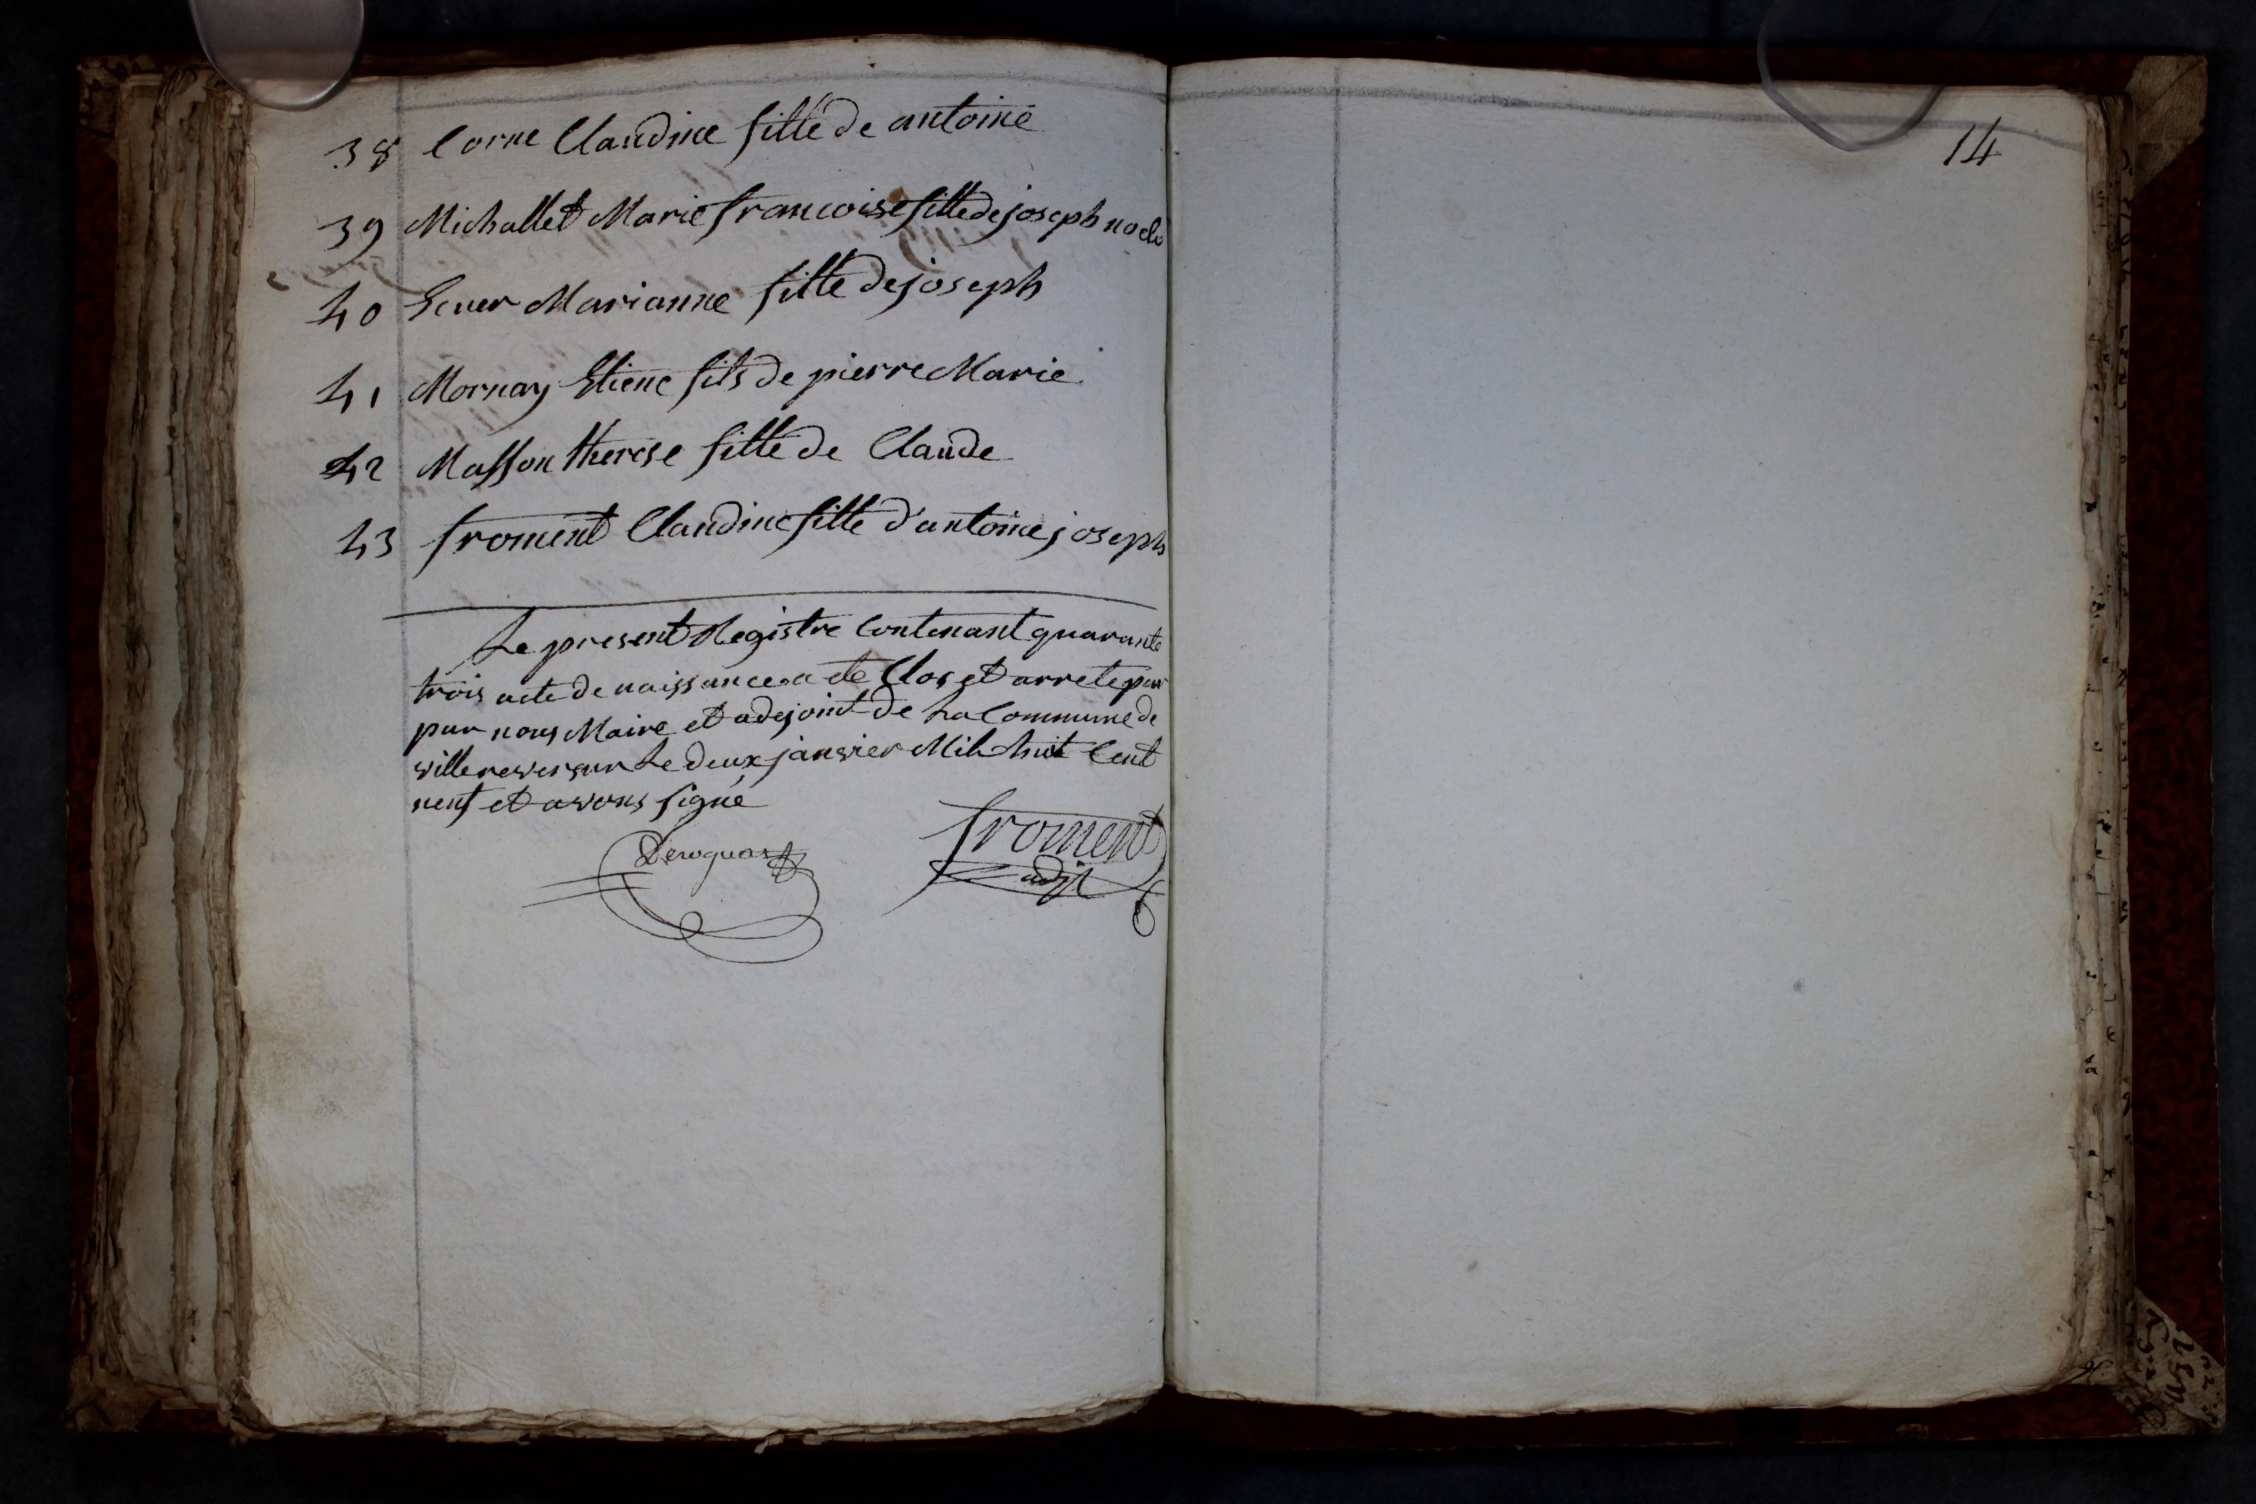 38 Corne Claudine fille de antoine
39 Michallet Marie francoise fille de joseph
40 Marianne fille de joseph
41 Mornay Etiene fils de pierre Marie
42 Masson therese fille de Claude
43 froment Claudine fille d'antoine joseph
Le present Registre Contenant quarante
trois acte de naissance a ete Clos et arrete par
par nous Maire et adejoint de La Commune de
villereversur Le deux janvier Mil huit Cent
neuf et avons signé
froment
adjt
14